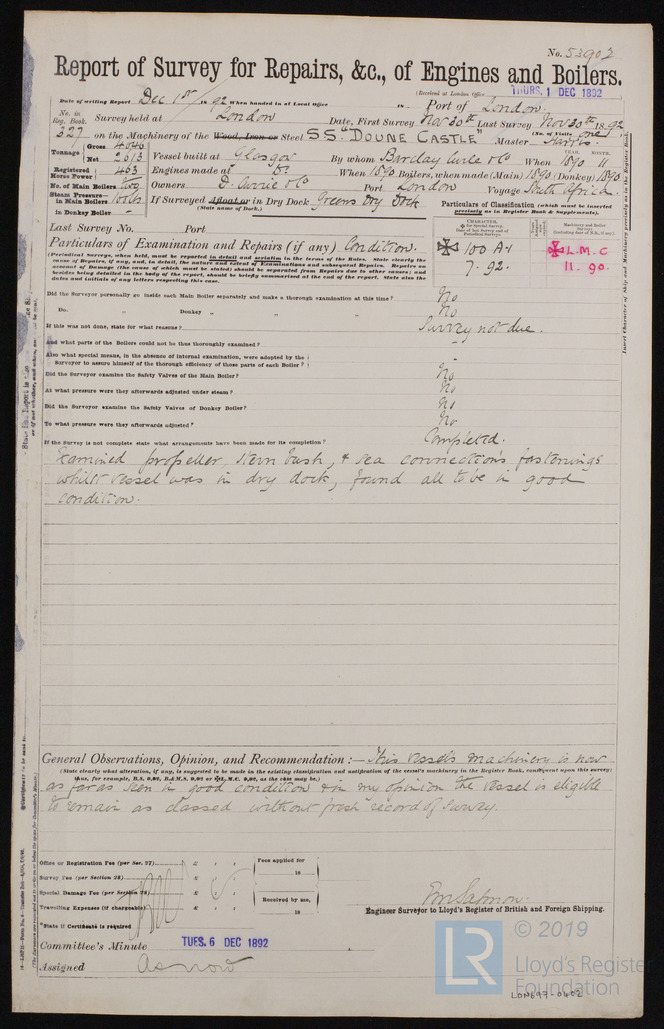 No. 53902
Report of Survey for Repairs, &c., of Engines and Boilers.
(Received at London Office THURS. 1 DEC 1892
Date of writing Report Dec 1st 1892 When handed in at Local Office 18 Port of London.
No. in Reg. Book. Survey held at London Date, First Survey Nov 30th Last Survey Nov 30th 1892
327 on the Machinery of the Wood, Iron or Steel S.S. "DOUNE CASTLE" Master Harris (No. of Visits one)
Tonnage Gross 4046 Net 2613 Vessel built at Glasgow By whom Barclay Curle & Co When 1890 YEAR. 11 MONTH.
Registered Horse Power 463 Engines made at Do When 1890 Boilers, when made (Main) 1890 (Donkey) 1890
No. of Main Boilers Two Owners D. Currie & Co Port London Voyage South Africa
Steam Pressure— in Main Boilers 160 lbs If Surveyed Afloat or in Dry Dock Greens Dry Dock
(State name of Dock.)
in Donkey Boiler –
Particulars of Classification (which must be inserted precisely as in Register Book & Supplements).
Last Survey No. Port
CHARACTER,
Machinery and Boiler Survey
Particulars of Examination and Repairs (if any) Condition.
100 A1
7.92.
L.M.C
11.90.
(Periodical Surveys, when held, must be reported in detail and seriatim in the terms of the Rules. State clearly the
cause of Repairs, if any, and, in detail, the nature and extent of Examinations and subsequent Repairs. Repairs on
account of Damage (the cause of which must be stated) should be separated from Repairs due to other causes; and
besides being detailed in the body of the report, should be briefly summarised at the end of the report. State also the
dates and initials of any letters respecting this case.
Did the Surveyor personally go inside each Main Boiler separately and make a thorough examination at this time? No
Do. „ Donkey „ „ „ No
If this was not done, state for what reasons? Survey not due.
And what parts of the Boilers could not be thoroughly examined? –
Also what special means, in the absence of internal examination, were adopted by the
Surveyor to assure himself of the thorough efficiency of those parts of each Boiler? –
Did the Surveyor examine the Safety Valves of the Main Boiler? No
At what pressure were they afterwards adjusted under steam? No
Did the Surveyor examine the Safety Valves of Donkey Boiler? No
To what pressure were they afterwards adjusted? No
If the Survey is not complete state what arrangements have been made for its completion? Completed.
Examined propeller, stern bush, & sea connections fastenings
whilst vessel was in dry dock, found all to be in good
condition.
General Observations, Opinion, and Recommendation:— This vessels machinery is now
(State clearly what alteration, if any, is suggested to be made in the existing classification and notification of the vessel's machinery in the Register Book, consequent upon this survey;
thus, for example, B.S. 9,92, B.&M.S. 9,92 or L.M.C. 9,92, as the case may be.)
as far as seen in good condition & in my opinion the vessel is eligible
to remain as classed without fresh record of survey.
Office or Registration Fee (per Sec. 27) £ : :
Survey Fee (per Section 28) £ : :
Special Damage Fee (per Section 28) £ : :
Travelling Expenses (if chargeable) £ : :
Fees applied for
18
Received by me,
18
*State if Certificate is required
Engineer Surveyor to Lloyd's Register of British and Foreign Shipping.
Committee's Minute TUES. 6 DEC 1892
Assigned as now
LR © 2019
Lloyd's Register
Foundation
LON697-0602